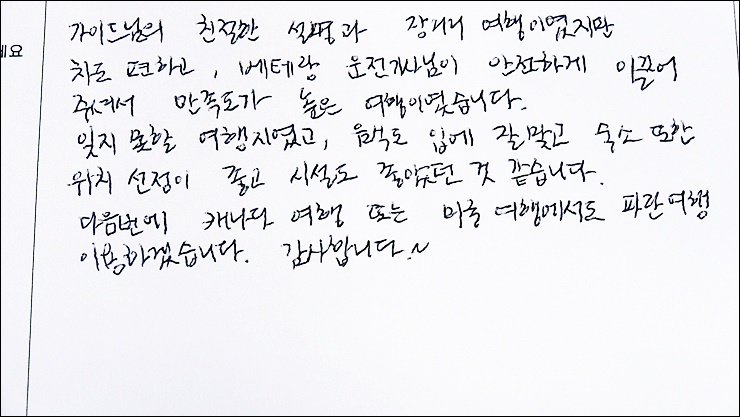 가이드님의 친절한 설명과 장거리 여행이였지만
세요
차도 편하고, 베테랑 운전기사님이 안전하게 이끌어
주셔서 만족도가 높은 여행이였습니다.
잊지 못할 여행지였고, 음식도 입에 잘맞고 숙소 또한
위치 선정이 좋고 시설도 좋았던 것 같습니다.
다음번에 캐나다 여행 또는 미국 여행에서도 파란여행
이용하겠습니다. 감사합니다.~